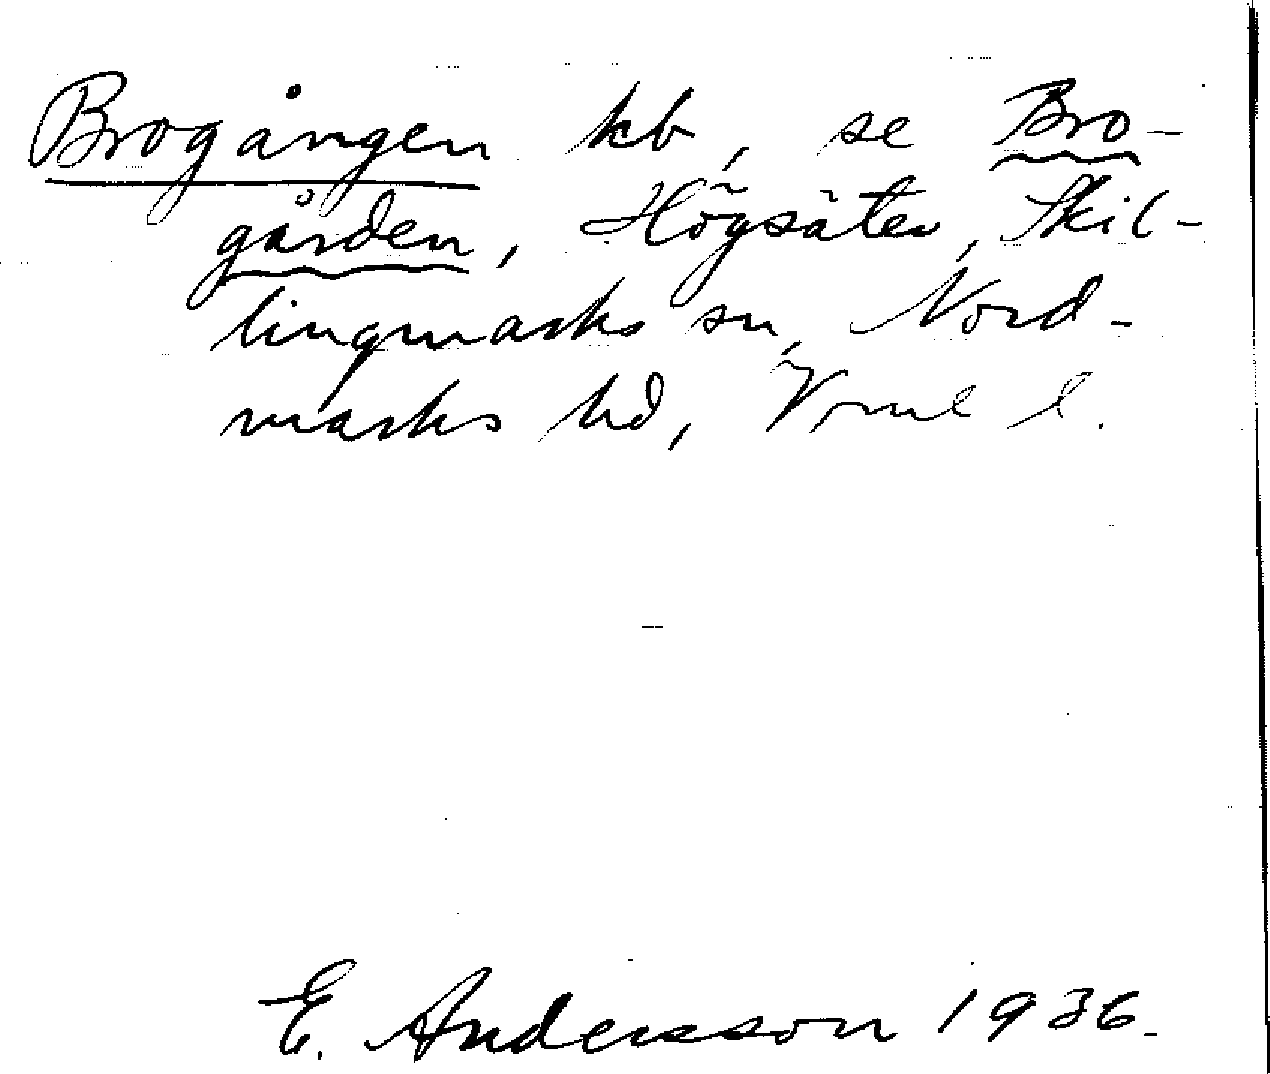 Brogången kb, se Bro-
gården, Högsäter, Skil-
lingmarks sn, Nord-
marks hd, Vrml l.
E. Andersson 1936.